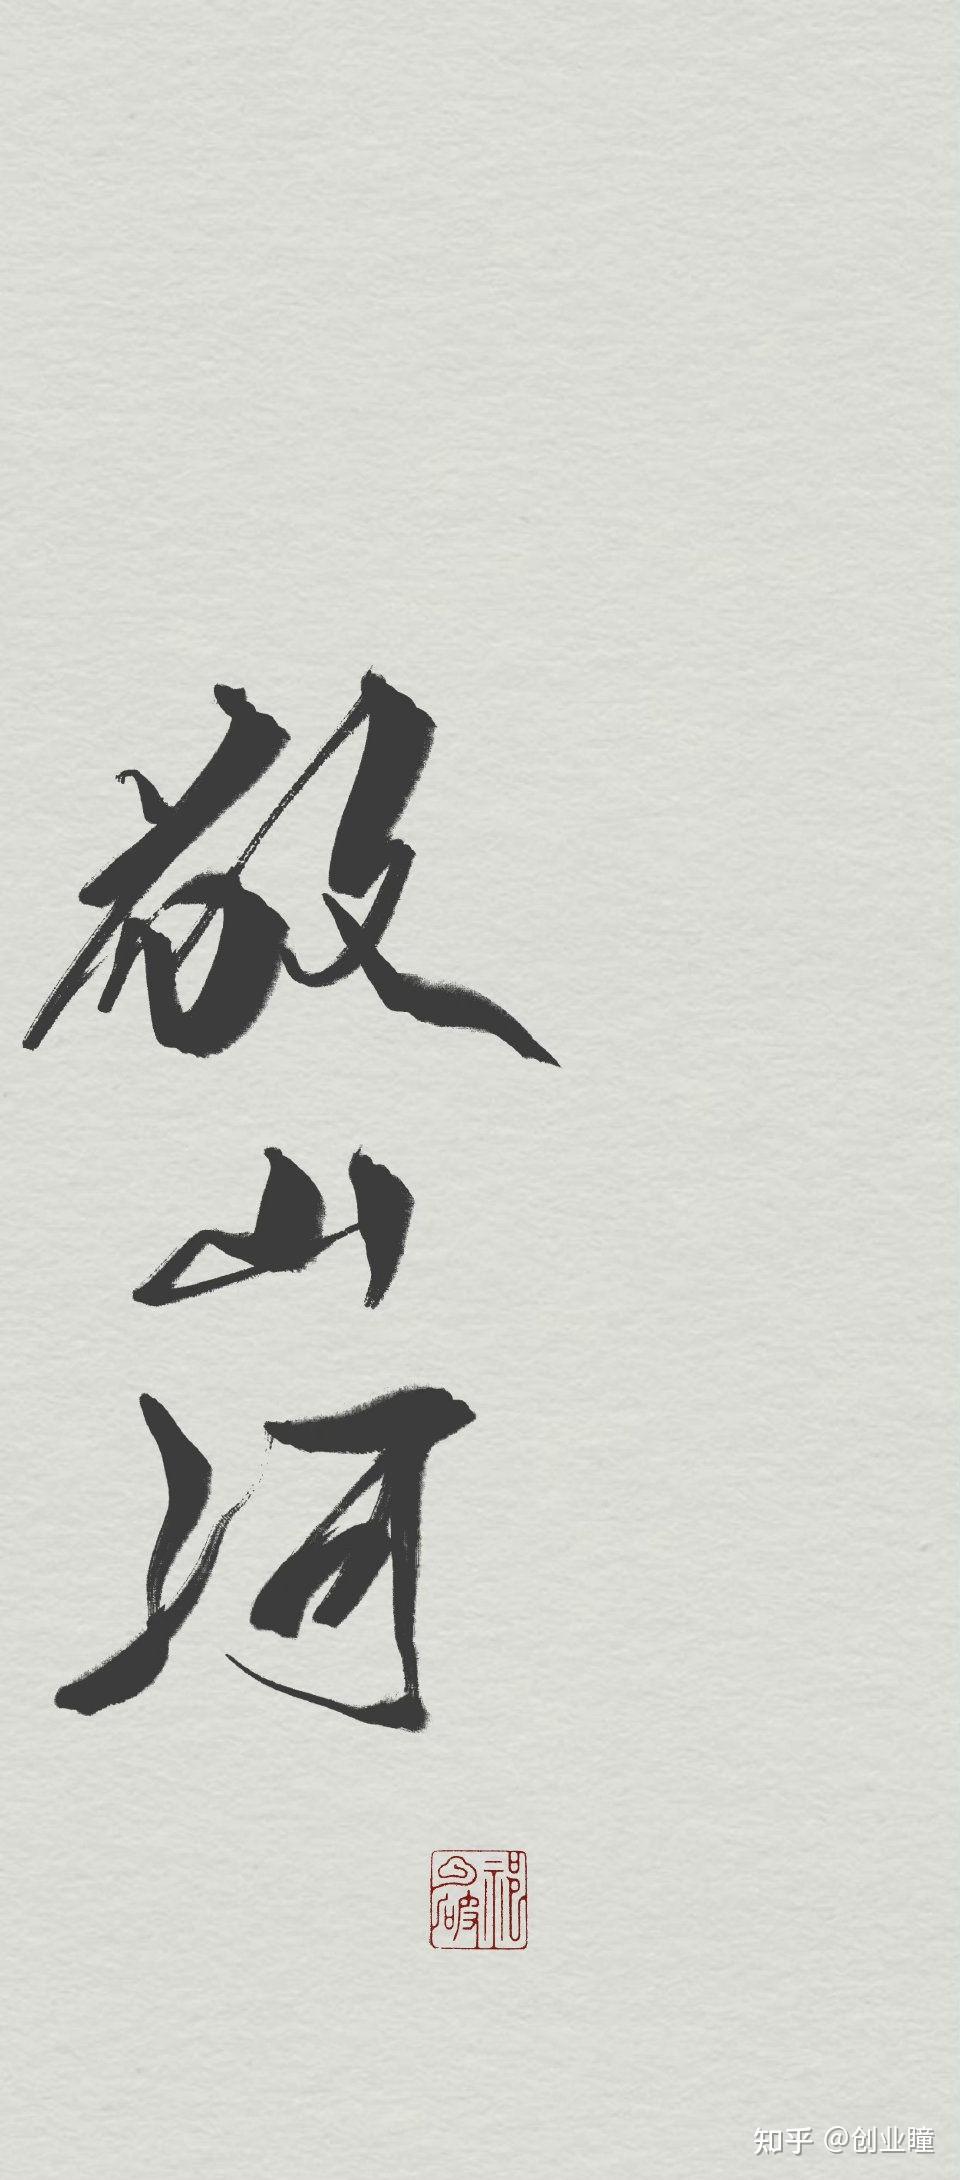 敬山河
知乎 @创业瞳